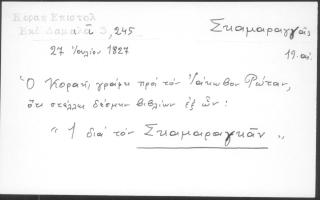 Κοραη Επιστολ
Εκδ Δαμαλᾶ 3, 245
Σκαμαραγγᾶς
27 Ἰουλίου 1827
19. αἰ.
Ὁ Κοραῆς γράφει πρὸς τὸν Ἰάκωβον Ρώταν,
ὅτι στέλλει δέσμην βιβλίων ἐξ ὧν:
"1 διὰ τὸν Σκαμαραγκᾶν"